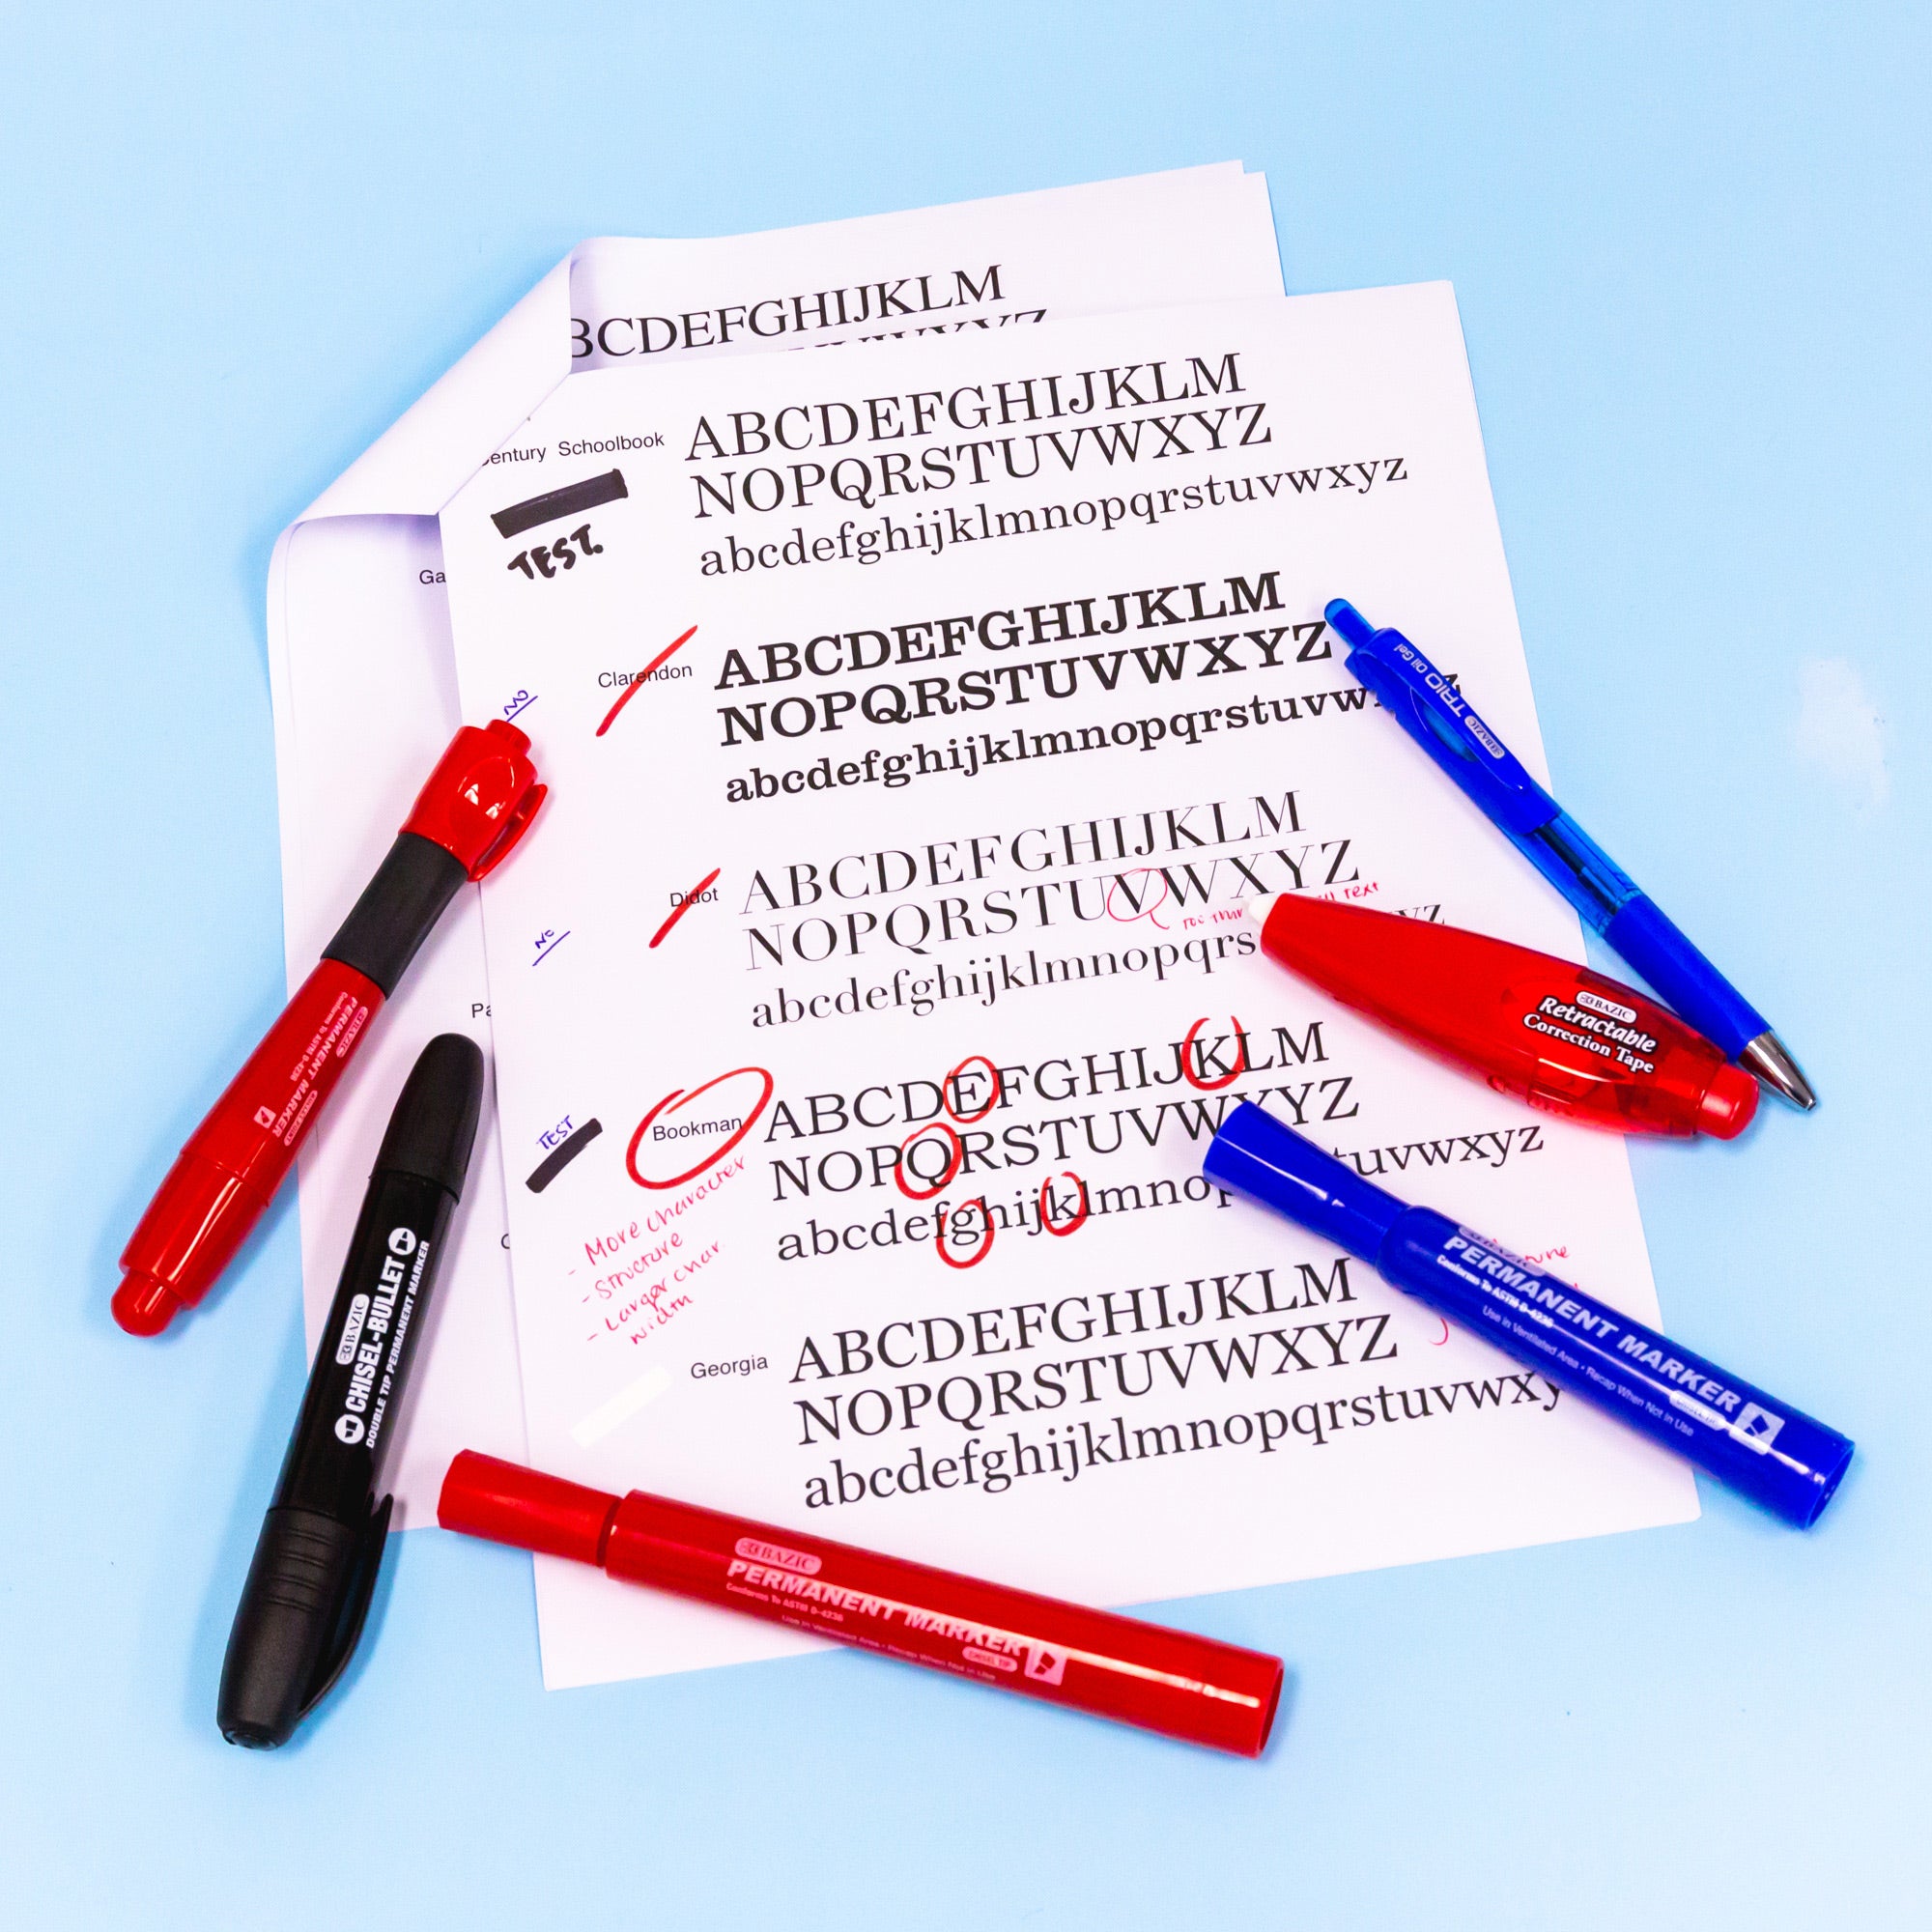 BCDEFGHIJKLM
Schoolbook
ABCDEFGHIJKLM
NOPQRSTUVWXYZ
abcdefghijklmnopqrstuvwxyz
TEST.
Ga
Clarendon
ABCDEFGHIJKLM
NOPQRSTUVWXYZ
abcdefghijklmnopqrstuvw
NO
Didot
ABCDEFGHIJKLM
NOPQRSTUVWXYZ
text
abcdefghijklmnopqrs yz
No
Pa
Bookman
ABCDEFGHIJKLM
NOPQRSTUVWXYZ
abcdefghijklmnop tuvwxyz
TEST
- More character
- Structure
- Larger char.
width
Georgia
ABCDEFGHIJKLM
NOPQRSTUVWXYZ
abcdefghijklmnopqrstuvwxy
BAZIC TRIO Oil Gel
BAZIC
Retractable
Correction Tape
BAZIC
PERMANENT MARKER
Conforms To ASTM D-4236
Use in Ventilated Area • Recap When Not in Use
BAZIC
PERMANENT MARKER
Conforms To ASTM D-4236
BAZIC
CHISEL-BULLET
DOUBLE TIP PERMANENT MARKER
BAZIC
PERMANENT MARKER
Conforms To ASTM D-4236
Use in Ventilated Area • Recap When Not in Use
CHISEL TIP